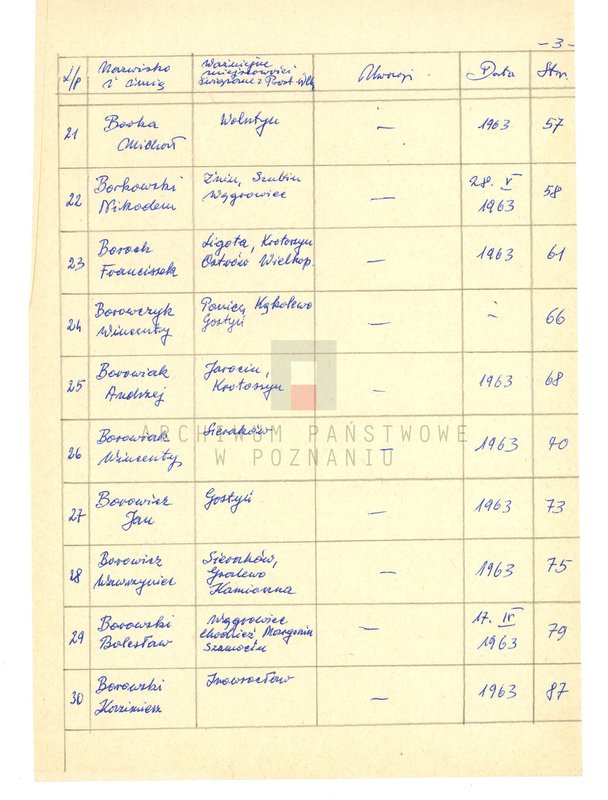 - 3 -
L/p Nazwisko i imię Ważniejsze miejscowości związane z Powst. Wlkp. Uwagi Data Str.
21 Borka Michał Wolsztyn — 1963 57
22 Borkowski Nikodem Żnin, Szubin Wągrowiec — 28. V 1963 58
23 Boroch Franciszek Ligota, Krotoszyn Ostrów Wielkop. — 1963 61
24 Borowczyk Wincenty Ponice, Kąkolewo Gostyń — - 66
25 Borowiak Andrzej Jarocin, Krotoszyn — 1963 68
26 Borowiak Wincenty Sieraków — 1963 70
27 Borowicz Jan Gostyń — 1963 73
28 Borowicz Wawrzyniec Sieraków, Kamionna — 1963 75
29 Borowski Bolesław Wągrowiec Chodzież Margonin Szamocin — 17. IV 1963 79
30 Borowski Kazimierz Inowrocław — 1963 87
ARCHIWUM PAŃSTWOWE
W POZNANIU